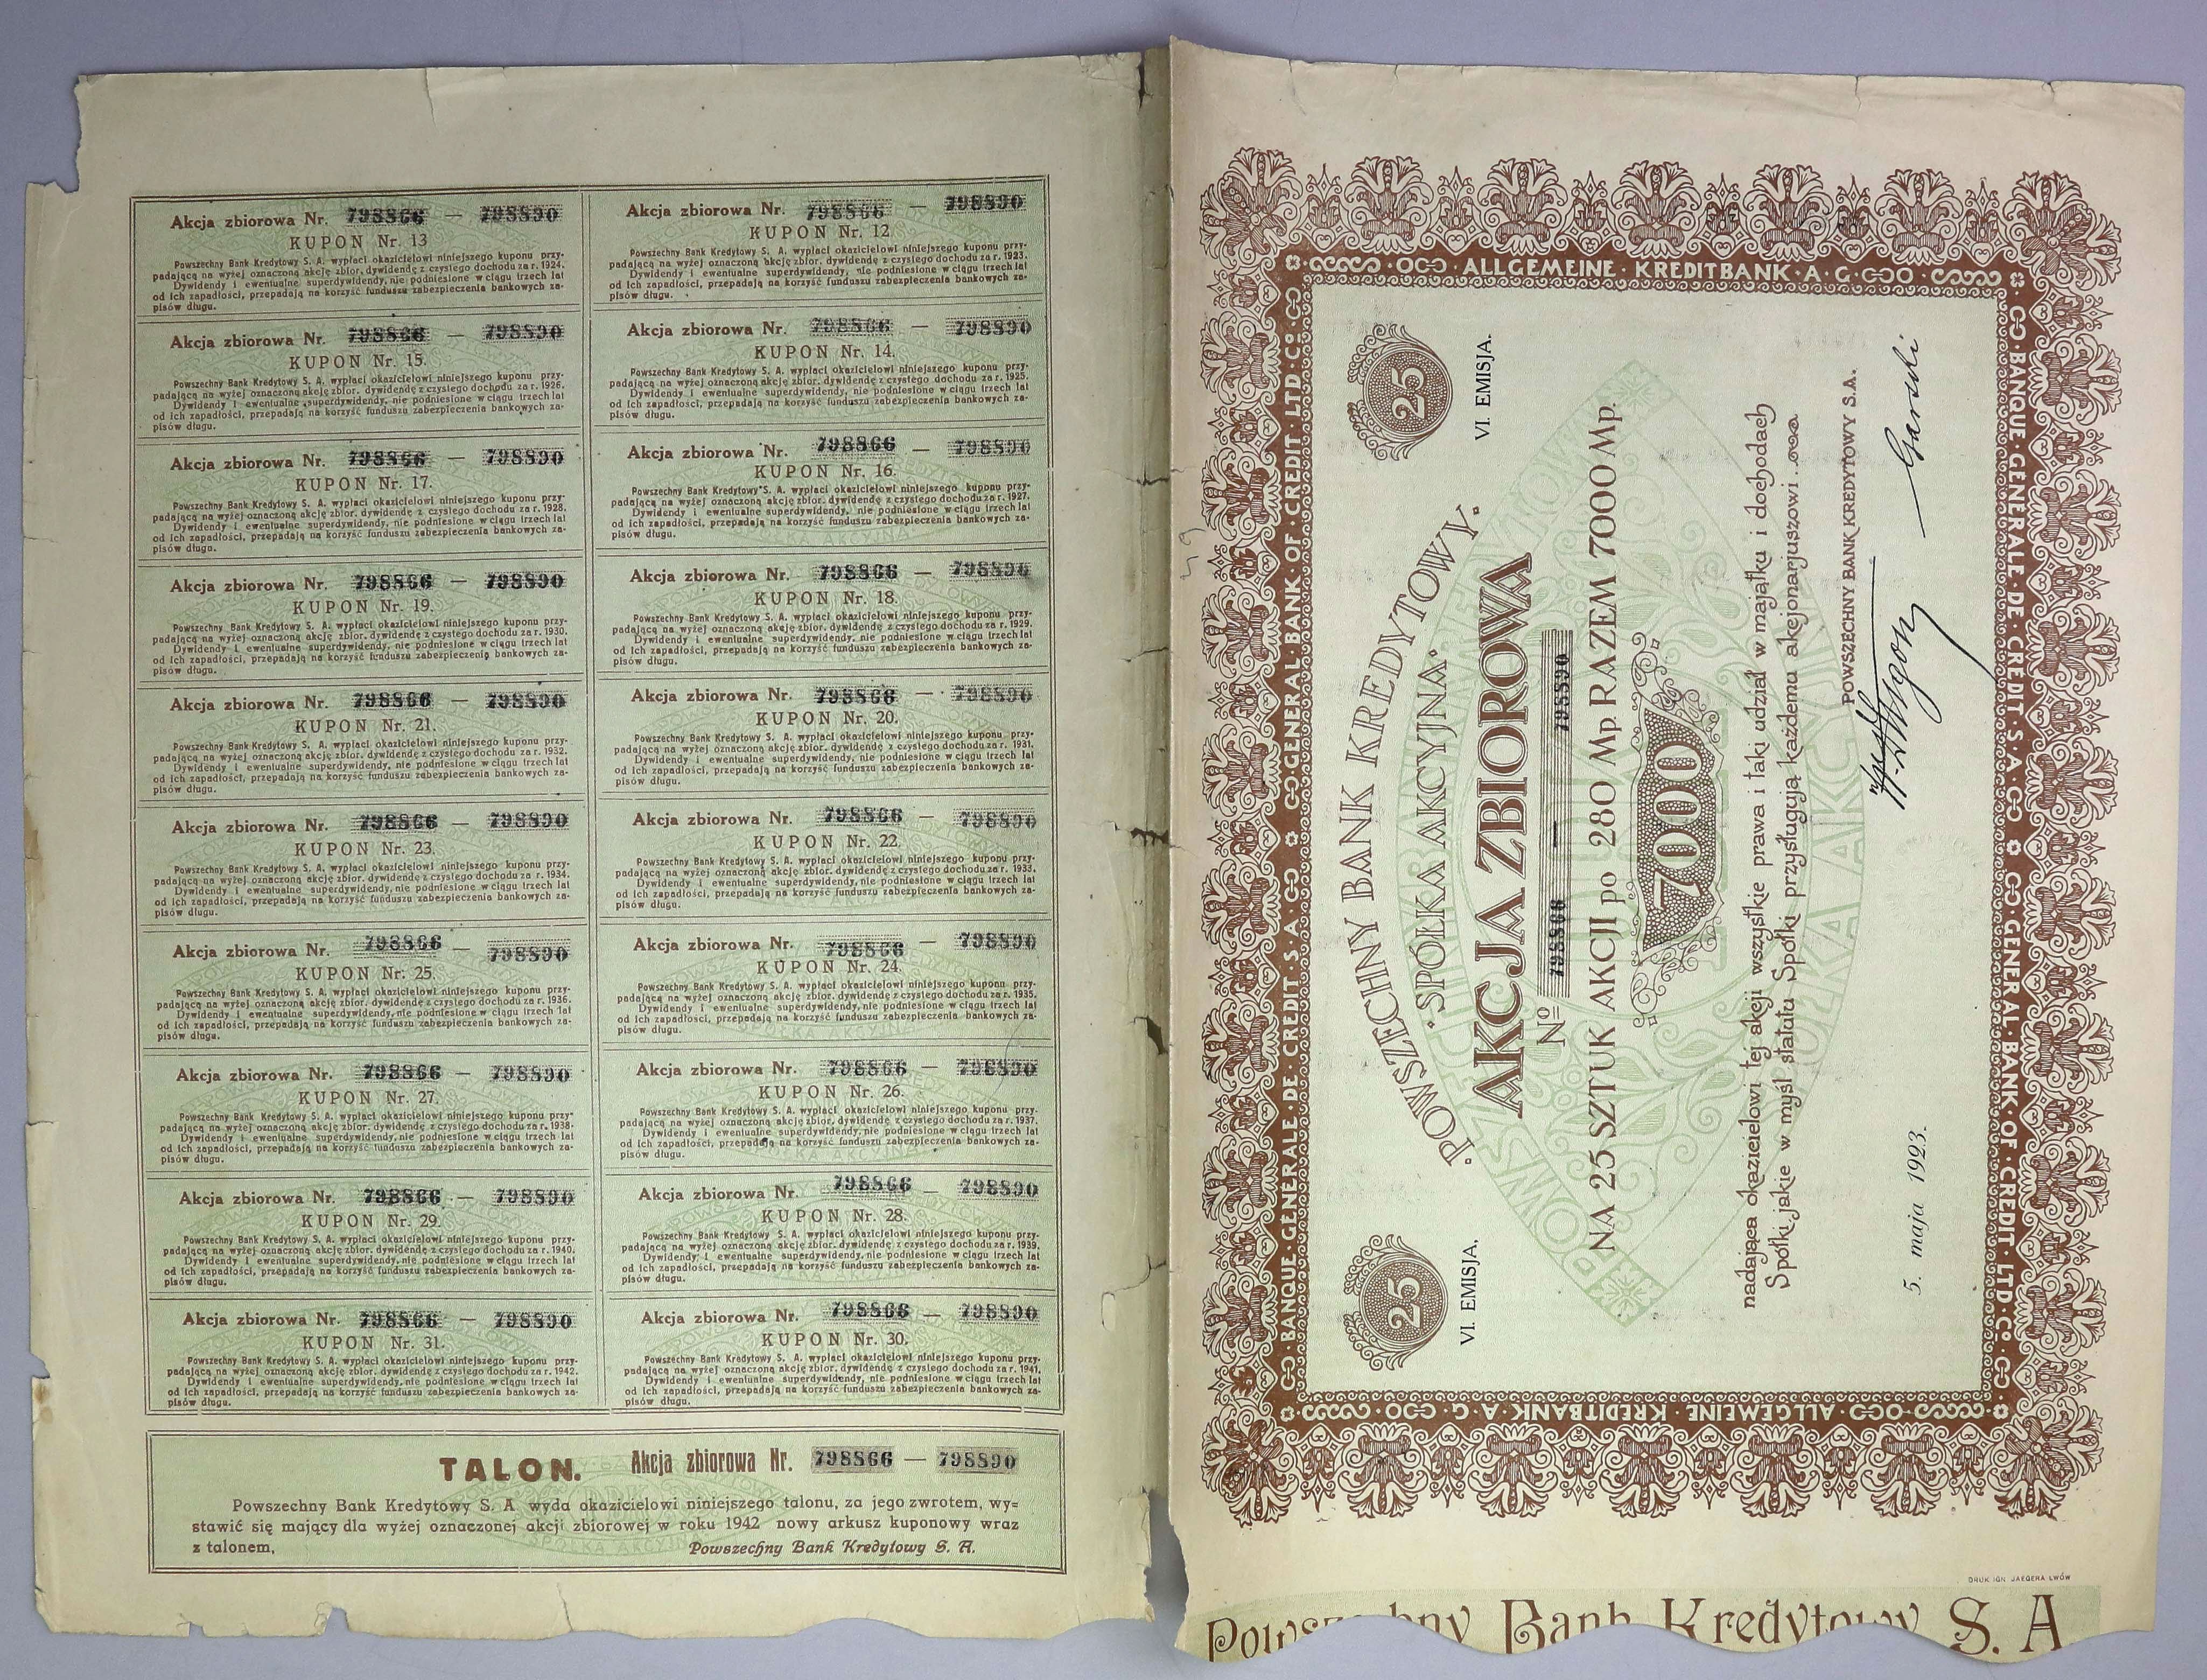 Akcja zbiorowa Nr. 798866 — 798890
KUPON Nr. 13
Powszechny Bank Kredytowy S. A. wypłaci okazicielowi niniejszego kuponu przy-
padającą na wyżej oznaczoną akcję zbior. dywidendę z czystego dochodu za r. 1924.
Dywidendy i ewentualne superdywidendy, nie podniesione w ciągu trzech lat
od ich zapadłości, przepadają na korzyść funduszu zabezpieczenia bankowych za-
pisów długu.
Akcja zbiorowa Nr. 798866 — 798890
KUPON Nr. 12
Powszechny Bank Kredytowy S. A. wypłaci okazicielowi niniejszego kuponu przy-
padającą na wyżej oznaczoną akcję zbior. dywidendę z czystego dochodu za r. 1923.
Dywidendy i ewentualne superdywidendy, nie podniesione w ciągu trzech lat
od ich zapadłości, przepadają na korzyść funduszu zabezpieczenia bankowych za-
pisów długu.
Akcja zbiorowa Nr. 798866 — 798890
KUPON Nr. 15.
Powszechny Bank Kredytowy S. A. wypłaci okazicielowi niniejszego kuponu przy-
padającą na wyżej oznaczoną akcję zbior. dywidendę z czystego dochodu za r. 1926.
Dywidendy i ewentualne superdywidendy, nie podniesione w ciągu trzech lat
od ich zapadłości, przepadają na korzyść funduszu zabezpieczenia bankowych za-
pisów długu.
Akcja zbiorowa Nr. 798866 — 798890
KUPON Nr. 14.
Powszechny Bank Kredytowy S. A. wypłaci okazicielowi niniejszego kuponu przy-
padającą na wyżej oznaczoną akcję zbior. dywidendę z czystego dochodu za r. 1925.
Dywidendy i ewentualne superdywidendy, nie podniesione w ciągu trzech lat
od ich zapadłości, przepadają na korzyść funduszu zabezpieczenia bankowych za-
pisów długu.
Akcja zbiorowa Nr. 798866 — 798890
KUPON Nr. 17.
Powszechny Bank Kredytowy S. A. wypłaci okazicielowi niniejszego kuponu przy-
padającą na wyżej oznaczoną akcję zbior. dywidendę z czystego dochodu za r. 1928.
Dywidendy i ewentualne superdywidendy, nie podniesione w ciągu trzech lat
od ich zapadłości, przepadają na korzyść funduszu zabezpieczenia bankowych za-
pisów długu.
Akcja zbiorowa Nr. 798866 — 798890
KUPON Nr. 16.
Powszechny Bank Kredytowy S. A. wypłaci okazicielowi niniejszego kuponu przy-
padającą na wyżej oznaczoną akcję zbior. dywidendę z czystego dochodu za r. 1927.
Dywidendy i ewentualne superdywidendy, nie podniesione w ciągu trzech lat
od ich zapadłości, przepadają na korzyść funduszu zabezpieczenia bankowych za-
pisów długu.
Akcja zbiorowa Nr. 798866 — 798890
KUPON Nr. 19.
Powszechny Bank Kredytowy S. A. wypłaci okazicielowi niniejszego kuponu przy-
padającą na wyżej oznaczoną akcję zbior. dywidendę z czystego dochodu za r. 1930.
Dywidendy i ewentualne superdywidendy, nie podniesione w ciągu trzech lat
od ich zapadłości, przepadają na korzyść funduszu zabezpieczenia bankowych za-
pisów długu.
Akcja zbiorowa Nr. 798866 — 798890
KUPON Nr. 18.
Powszechny Bank Kredytowy S. A. wypłaci okazicielowi niniejszego kuponu przy-
padającą na wyżej oznaczoną akcję zbior. dywidendę z czystego dochodu za r. 1929.
Dywidendy i ewentualne superdywidendy, nie podniesione w ciągu trzech lat
od ich zapadłości, przepadają na korzyść funduszu zabezpieczenia bankowych za-
pisów długu.
Akcja zbiorowa Nr. 798866 — 798890
KUPON Nr. 21.
Powszechny Bank Kredytowy S. A. wypłaci okazicielowi niniejszego kuponu przy-
padającą na wyżej oznaczoną akcję zbior. dywidendę z czystego dochodu za r. 1932.
Dywidendy i ewentualne superdywidendy, nie podniesione w ciągu trzech lat
od ich zapadłości, przepadają na korzyść funduszu zabezpieczenia bankowych za-
pisów długu.
Akcja zbiorowa Nr. 798866 — 798890
KUPON Nr. 20.
Powszechny Bank Kredytowy S. A. wypłaci okazicielowi niniejszego kuponu przy-
padającą na wyżej oznaczoną akcję zbior. dywidendę z czystego dochodu za r. 1931.
Dywidendy i ewentualne superdywidendy, nie podniesione w ciągu trzech lat
od ich zapadłości, przepadają na korzyść funduszu zabezpieczenia bankowych za-
pisów długu.
Akcja zbiorowa Nr. 798866 — 798890
KUPON Nr. 23.
Powszechny Bank Kredytowy S. A. wypłaci okazicielowi niniejszego kuponu przy-
padającą na wyżej oznaczoną akcję zbior. dywidendę z czystego dochodu za r. 1934.
Dywidendy i ewentualne superdywidendy, nie podniesione w ciągu trzech lat
od ich zapadłości, przepadają na korzyść funduszu zabezpieczenia bankowych za-
pisów długu.
Akcja zbiorowa Nr. 798866 — 798890
KUPON Nr. 22.
Powszechny Bank Kredytowy S. A. wypłaci okazicielowi niniejszego kuponu przy-
padającą na wyżej oznaczoną akcję zbior. dywidendę z czystego dochodu za r. 1933.
Dywidendy i ewentualne superdywidendy, nie podniesione w ciągu trzech lat
od ich zapadłości, przepadają na korzyść funduszu zabezpieczenia bankowych za-
pisów długu.
Akcja zbiorowa Nr. 798866 — 798890
KUPON Nr. 25.
Powszechny Bank Kredytowy S. A. wypłaci okazicielowi niniejszego kuponu przy-
padającą na wyżej oznaczoną akcję zbior. dywidendę z czystego dochodu za r. 1936.
Dywidendy i ewentualne superdywidendy, nie podniesione w ciągu trzech lat
od ich zapadłości, przepadają na korzyść funduszu zabezpieczenia bankowych za-
pisów długu.
Akcja zbiorowa Nr. 798866 — 798890
KUPON Nr. 24.
Powszechny Bank Kredytowy S. A. wypłaci okazicielowi niniejszego kuponu przy-
padającą na wyżej oznaczoną akcję zbior. dywidendę z czystego dochodu za r. 1935.
Dywidendy i ewentualne superdywidendy, nie podniesione w ciągu trzech lat
od ich zapadłości, przepadają na korzyść funduszu zabezpieczenia bankowych za-
pisów długu.
Akcja zbiorowa Nr. 798866 — 798890
KUPON Nr. 27.
Powszechny Bank Kredytowy S. A. wypłaci okazicielowi niniejszego kuponu przy-
padającą na wyżej oznaczoną akcję zbior. dywidendę z czystego dochodu za r. 1938.
Dywidendy i ewentualne superdywidendy, nie podniesione w ciągu trzech lat
od ich zapadłości, przepadają na korzyść funduszu zabezpieczenia bankowych za-
pisów długu.
Akcja zbiorowa Nr. 798866 — 798890
KUPON Nr. 26.
Powszechny Bank Kredytowy S. A. wypłaci okazicielowi niniejszego kuponu przy-
padającą na wyżej oznaczoną akcję zbior. dywidendę z czystego dochodu za r. 1937.
Dywidendy i ewentualne superdywidendy, nie podniesione w ciągu trzech lat
od ich zapadłości, przepadają na korzyść funduszu zabezpieczenia bankowych za-
pisów długu.
Akcja zbiorowa Nr. 798866 — 798890
KUPON Nr. 29.
Powszechny Bank Kredytowy S. A. wypłaci okazicielowi niniejszego kuponu przy-
padającą na wyżej oznaczoną akcję zbior. dywidendę z czystego dochodu za r. 1940.
Dywidendy i ewentualne superdywidendy, nie podniesione w ciągu trzech lat
od ich zapadłości, przepadają na korzyść funduszu zabezpieczenia bankowych za-
pisów długu.
Akcja zbiorowa Nr. 798866 — 798890
KUPON Nr. 28.
Powszechny Bank Kredytowy S. A. wypłaci okazicielowi niniejszego kuponu przy-
padającą na wyżej oznaczoną akcję zbior. dywidendę z czystego dochodu za r. 1939.
Dywidendy i ewentualne superdywidendy, nie podniesione w ciągu trzech lat
od ich zapadłości, przepadają na korzyść funduszu zabezpieczenia bankowych za-
pisów długu.
Akcja zbiorowa Nr. 798866 — 798890
KUPON Nr. 31.
Powszechny Bank Kredytowy S. A. wypłaci okazicielowi niniejszego kuponu przy-
padającą na wyżej oznaczoną akcję zbior. dywidendę z czystego dochodu za r. 1942.
Dywidendy i ewentualne superdywidendy, nie podniesione w ciągu trzech lat
od ich zapadłości, przepadają na korzyść funduszu zabezpieczenia bankowych za-
pisów długu.
Akcja zbiorowa Nr. 798866 — 798890
KUPON Nr. 30.
Powszechny Bank Kredytowy S. A. wypłaci okazicielowi niniejszego kuponu przy-
padającą na wyżej oznaczoną akcję zbior. dywidendę z czystego dochodu za r. 1941.
Dywidendy i ewentualne superdywidendy, nie podniesione w ciągu trzech lat
od ich zapadłości, przepadają na korzyść funduszu zabezpieczenia bankowych za-
pisów długu.
TALON. Akcja zbiorowa Nr. 798866 — 798890
Powszechny Bank Kredytowy S. A. wyda okazicielowi niniejszego talonu, za jego zwrotem, wy=
stawić się mający dla wyżej oznaczonej akcji zbiorowej w roku 1942 nowy arkusz kuponowy wraz
z talonem.
Powszechny Bank Kredytowy S. A.
BANQUE·GÉNÉRALE·DE·CRÉDIT·S·A· GENERAL·BANK·OF·CREDIT·LTD·Cº
ALLGEMEINE·KREDITBANK·A·G·
BANQUE·GÉNÉRALE·DE·CRÉDIT·S·A· GENERAL·BANK·OF·CREDIT·LTD·Cº
ALLGEMEINE·KREDITBANK·A·G·
25
25
VI. EMISJA.
VI. EMISJA.
·POWSZECHNY BANK KREDYTOWY·
·SPÓŁKA AKCYJNA·
AKCJA ZBIOROWA
Nº 798866 — 798890
NA 25 SZTUK AKCJI po 280 Mp RAZEM 7000 Mp.
7000
nadająca okazicielowi tej akcji wszystkie prawa i taki udział w majątku i dochodach
Spółki, jakie w myśl statutu Spółki przysługują każdemu akcjonarjuszowi.
POWSZECHNY BANK KREDYTOWY S.A.
5. maja 1923.
DRUK IGN. JAEGERA LWÓW
Powszechny Bank Kredytowy S. A